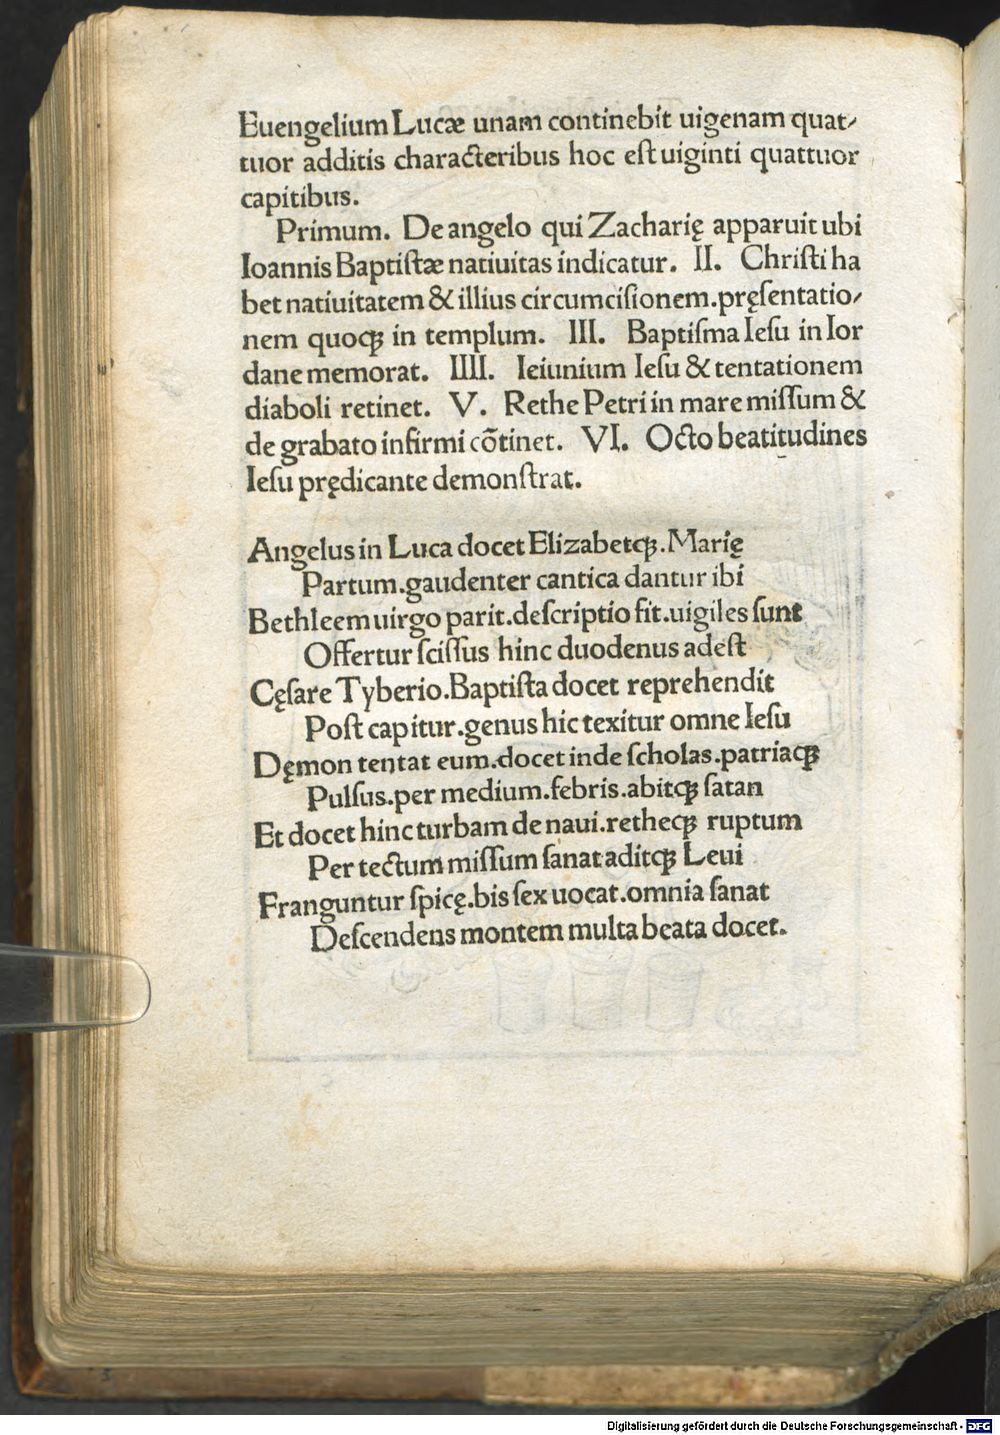 Euengelium Lucæ unam continebit uigenam quat⸗
tuor additis characteribus hoc eſt uiginti quattuor
capitibus.
Primum. De angelo qui Zacharię apparuit ubi
Ioannis Baptiſtæ natiuitas indicatur. II. Chriſti ha
bet natiuitatem & illius circumciſionem.pręſentatio⸗
nem quoqꝫ in templum. III. Baptiſma Ieſu in Ior
dane memorat. IIII. Ieiunium Ieſu & tentationem
diaboli retinet. V. Rethe Petri in mare miſſum &
de grabato infirmi cōtinet. VI. Octo beatitudines
Ieſu prędicante demonſtrat.
Angelus in Luca docet Elizabetqꝫ.Marię
Partum.gaudenter cantica dantur ibi
Bethleem uirgo parit.deſcriptio fit.uigiles ſunt
Offertur ſciſſus hinc duodenus adeſt
Cęſare Tyberio.Baptiſta docet reprehendit
Poſt capitur.genus hic texitur omne Ieſu
Dęmon tentat eum.docet inde ſcholas.patriaqꝫ
Pulſus.per medium.febris.abitqꝫ ſatan
Et docet hinc turbam de naui.retheqꝫ ruptum
Per tectum miſſum ſanat aditqꝫ Leui
Franguntur ſpicę.bis ſex uocat.omnia ſanat
Deſcendens montem multa beata docet.
Digitalisierung gefördert durch die Deutsche Forschungsgemeinschaft - DFG